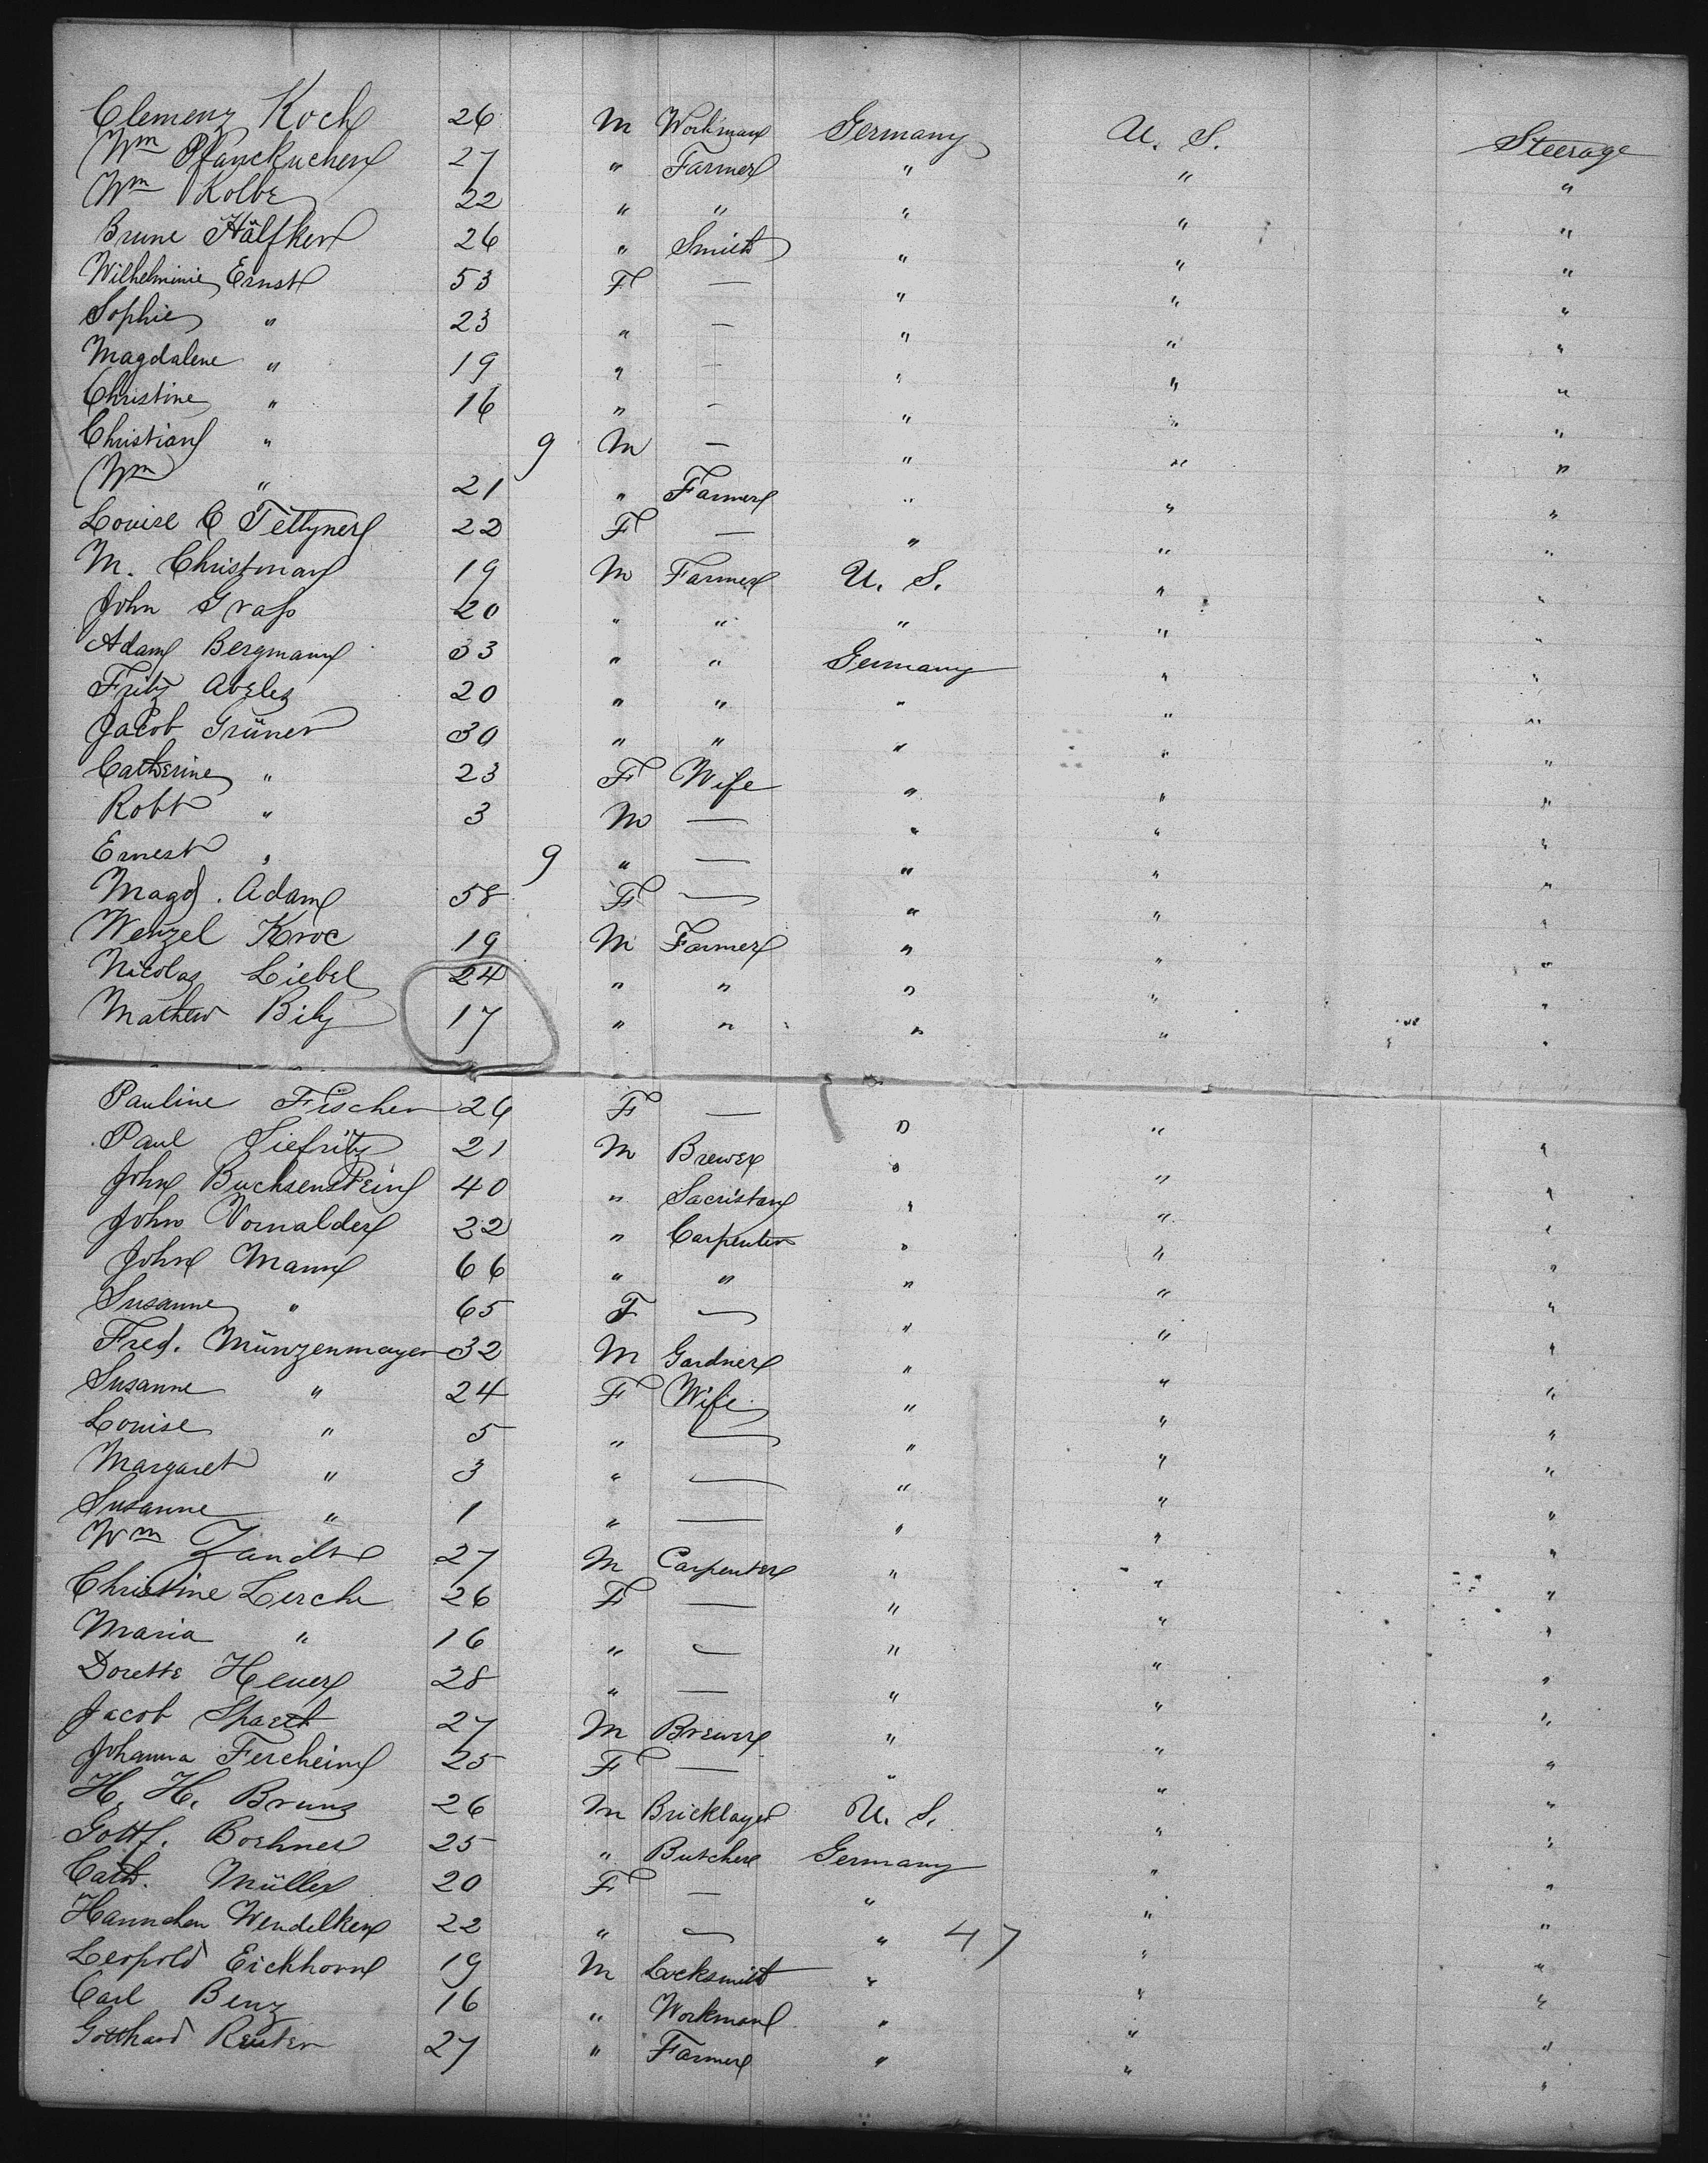 Clemenz Koch 26 M Workman Germany U. S. Steerage
Wm Pfanckuchen 27 " Farmer " " "
Wm Kolbe 22 " " " " "
Brune Hälfken 26 " Smith " " "
Wilhelminie Ernst 53 F — " " "
Sophie " 23 " — " " "
Magdalene " 19 " — " " "
Christine " 16 " — " " "
Christian " 9 M — " " "
Wm " 21 " Farmer " " "
Louise C 22 F — " " "
M. Christman 19 M Farmer U. S. " "
John Grass 20 " " " " "
Adam Bergmann 33 " " Germany " "
Fritz Abeles 20 " " " " "
Jacob Grüner 30 " " " " "
Catherine " 23 F Wife " " "
Robt " 3 M — " " "
Ernest " 9 " — " " "
Magd. Adam 58 F — " " "
Wenzel Kroc 19 M Farmer " " "
Nicolas Liebel 24 " " " " "
Mathew Bily 17 " " " " "
Pauline Fischer 26 F — " "
Paul Siefritz 21 M Brewer " " "
John Buchsenstein 40 " Sacristan " " "
John Vornalder 22 " Carpenter " " "
John Mann 66 " " " " "
Susanne " 65 F — " " "
Fred. Münzenmayer 32 M Gardner " " "
Susanne " 24 F Wife " " "
Louise " 5 " — " " "
Margaret " 3 " — " " "
Susanne " 1 " — " " "
Wm Zandt 27 M Carpenter " " "
Christine Lerche 26 F — " " "
Maria " 16 " — " " "
Dorette Heuer 28 " — " " "
Jacob Spaeth 27 M Brewer " " "
Johanna Fercheim 25 F — " " "
H. H. Bruns 26 M Bricklayer U. S. " "
Gottf. Boehner 25 " Butcher Germany " "
Cath. Müller 20 F — " " "
Hannchen Wendelken 22 " — " 47 " "
Leopold Eichhorn 19 M Locksmith " " "
Carl Benz 16 " Workman " " "
Gotthard Reuter 27 " Farmer " " "